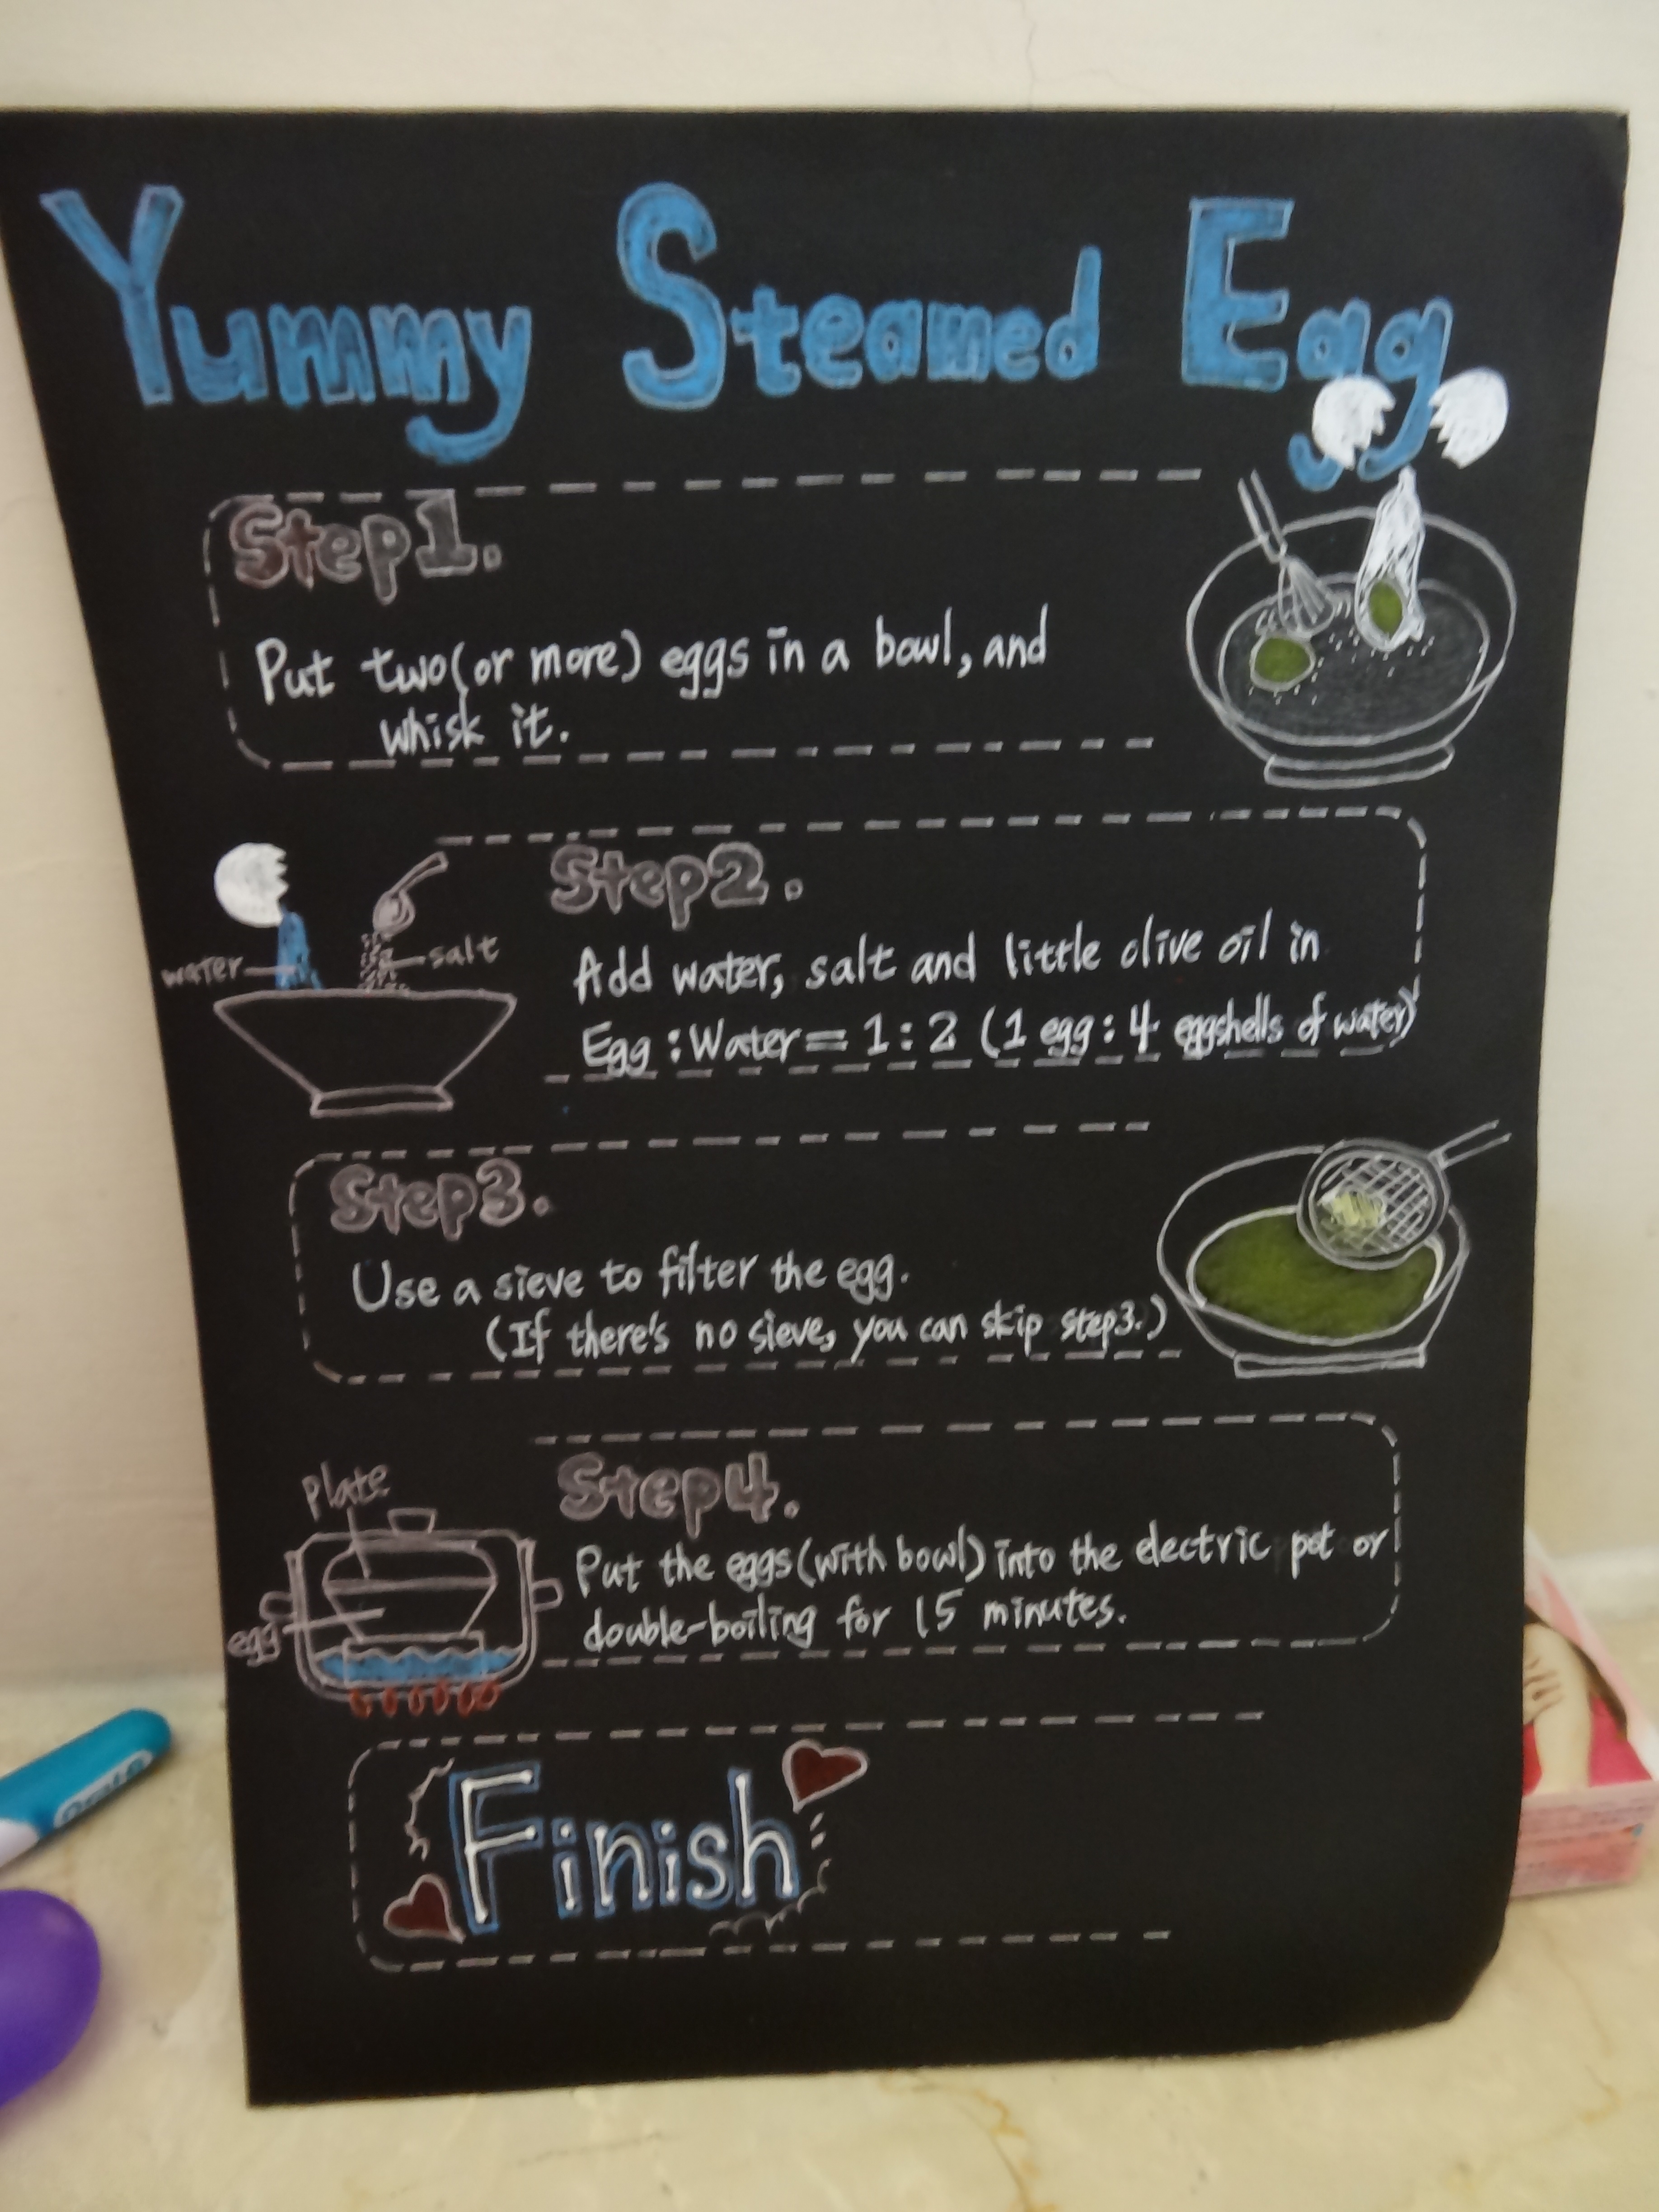 Yummy Steamed Egg
Step1.
Put two(or more) eggs in a bowl, and
whisk it.
Step2.
water
salt
Add water, salt and little olive oil in
Egg:Water= 1:2 (1 egg:4 eggshells of water)
Step3.
Use a sieve to filter the egg.
(If there's no sieve, you can skip step3.)
Plate
egg
Step4.
Put the eggs(with bowl) into the electric pot or
double-boiling for 15 minutes.
Finish